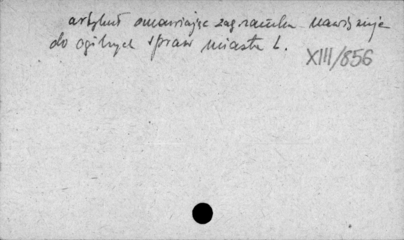 artykuł omawiając zagraniczn nawiązuje
do ogólnych spraw miasta L.
XIII/856